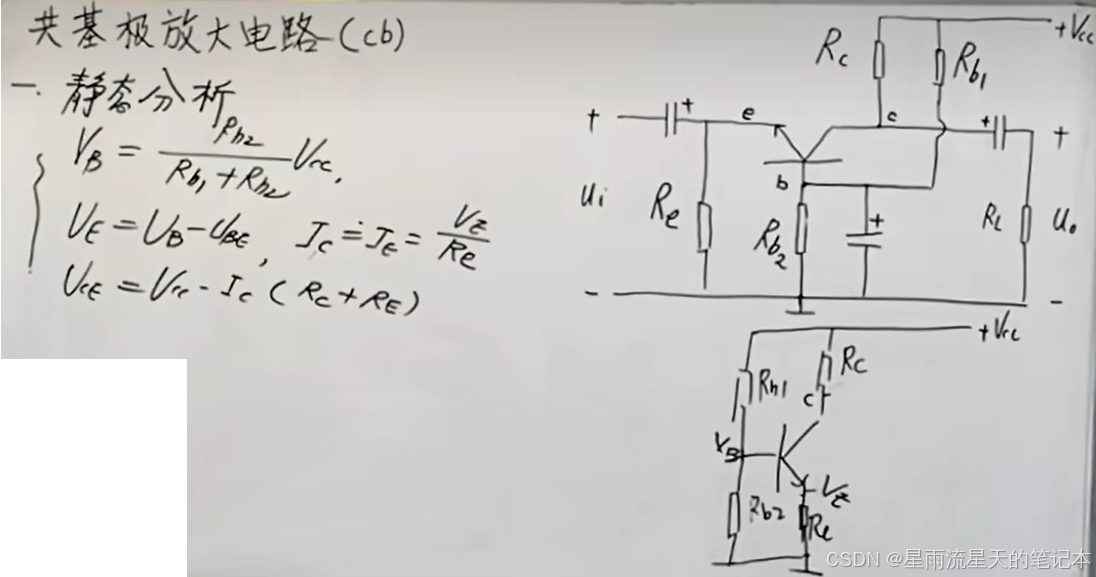 共基极放大电路(cb)
一. 静态分析
V_B = \frac{R_{b2}}{R_{b1}+R_{b2}} V_{CC},
U_E = U_B - U_{BE}, I_C ≐ I_E = \frac{V_E}{Re}
U_{CE} = V_{CC} - I_C (R_C + R_E)
+V_{CC}
R_c
R_{b1}
+
+
e
c
+
+
b
u_i
R_e
R_{b2}
+
R_L
u_o
-
-
+V_{CC}
R_{b1}
R_C
C
V_B
V_E
R_{b2}
Re
CSDN @星雨流星天的笔记本